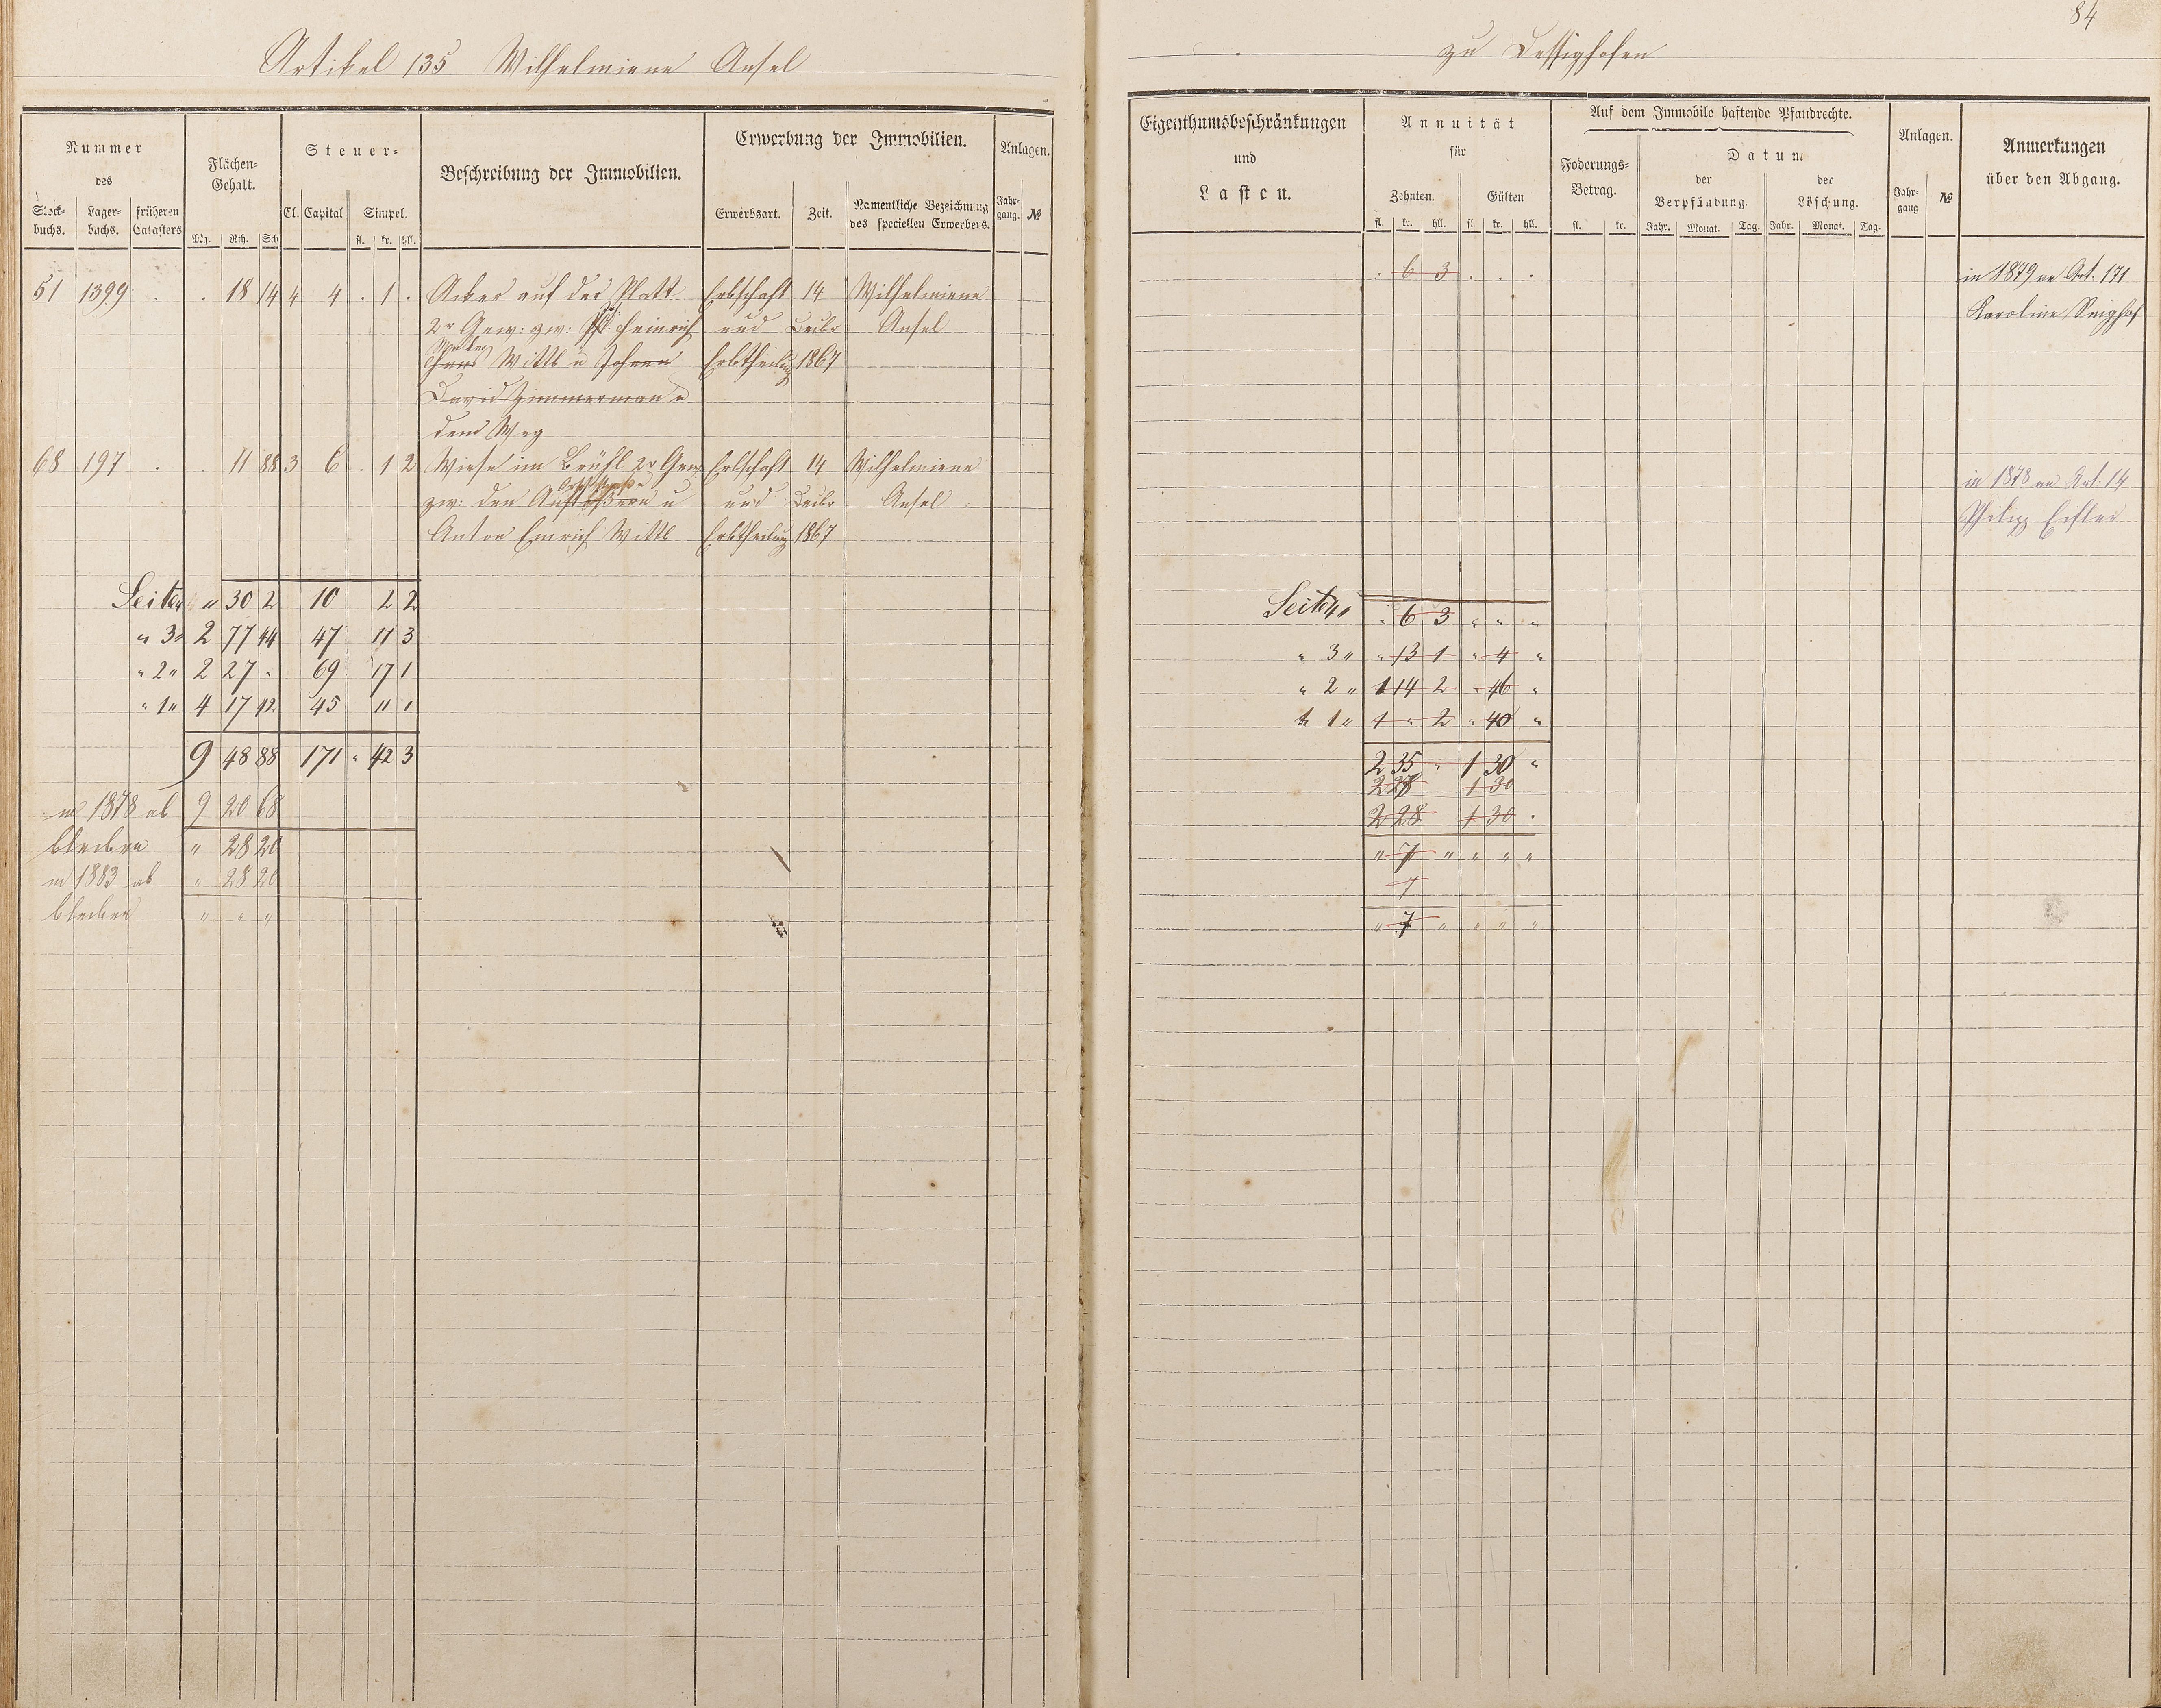 84
Artikel 135 Wilhelmiene Ansel
zu Dessighofen
Nummer
des
Stock-
buchs.
Lager-
buchs.
früheren
Catasters
Flächen-
Gehalt.
Mg. Rth. Sch
Steuer-
Cl. Capital Simpel.
fl. kr. hll.
Beschreibung der Immobilien.
Erwerbung der Immobilien.
Erwerbsart. Zeit. Namentliche Bezeichnung
des speciellen Erwerbers.
Anlagen.
Jahr-
gang. №
51 1399 . . 18 14 4 4 . 1 . Acker auf der Platt Erbschaft 14 Wilhelmiene
2r Gew: zw: Heinrich und Decbr Ansel
Wittb u Johann Erbtheilung 1867
David Zimmerman u
dem Weg
68 197 . . 11 88 3 6 . 1 2 Wiese im Brühl 2r Gew Erbschaft 14 Wilhelmiene
zw: den Aufstößern u und Decbr Ansel
Anton Emrich Wittb Erbtheilung 1867
Seite 4 " 30 2 10 2 2
" 3 " 2 77 44 47 11 3
" 2 " 2 27 . 69 17 1
" 1 " 4 17 42 45 11 1
9 48 88 171 " 42 3
in 1878 ab 9 20 68
bleiben " 28 20
in 1883 ab " 28 20
bleiben " " "
Eigenthumsbeschränkungen
und
Lasten.
Annuität
für
Zehnten. Gülten
fl. kr. hll. fl. kr. hll.
Auf dem Immobile haftende Pfandrechte.
Foderungs-
Betrag.
fl. kr.
Datum
der
Verpfändung.
Jahr. Monat. Tag.
der
Löschung.
Jahr. Monat. Tag.
Anlagen.
Jahr-
gang №
Anmerkungen
über den Abgang.
. 6 3 . . . in 1879 an Art. 171
Karoline
in 1878 an Art. 14
Philipp
Seite 4 " " 6 3 " " "
" 3 " " 13 1 " 4 "
" 2 " 1 14 2 " 46 "
" 1 " 1 " 2 " 40 "
2 35 " 1 30 "
2 28 1 30
2 28 1 30 .
" 7 " " " "
7
" 7 " " " "